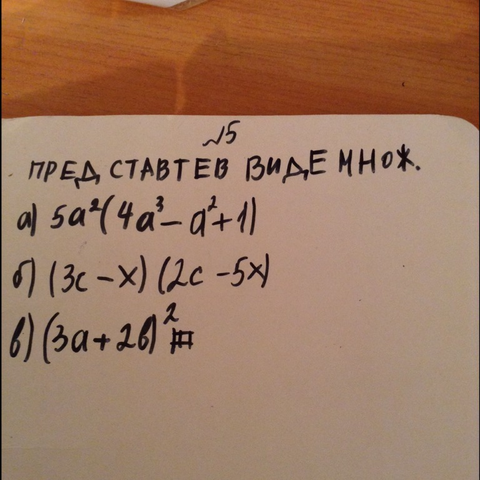 №5
ПРЕДСТАВТЕВ ВИДЕ МНОЖ.
а) 5a²(4a³ - a² + 1)
б) (3c - x) (2c - 5x)
в) (3a + 2b)²